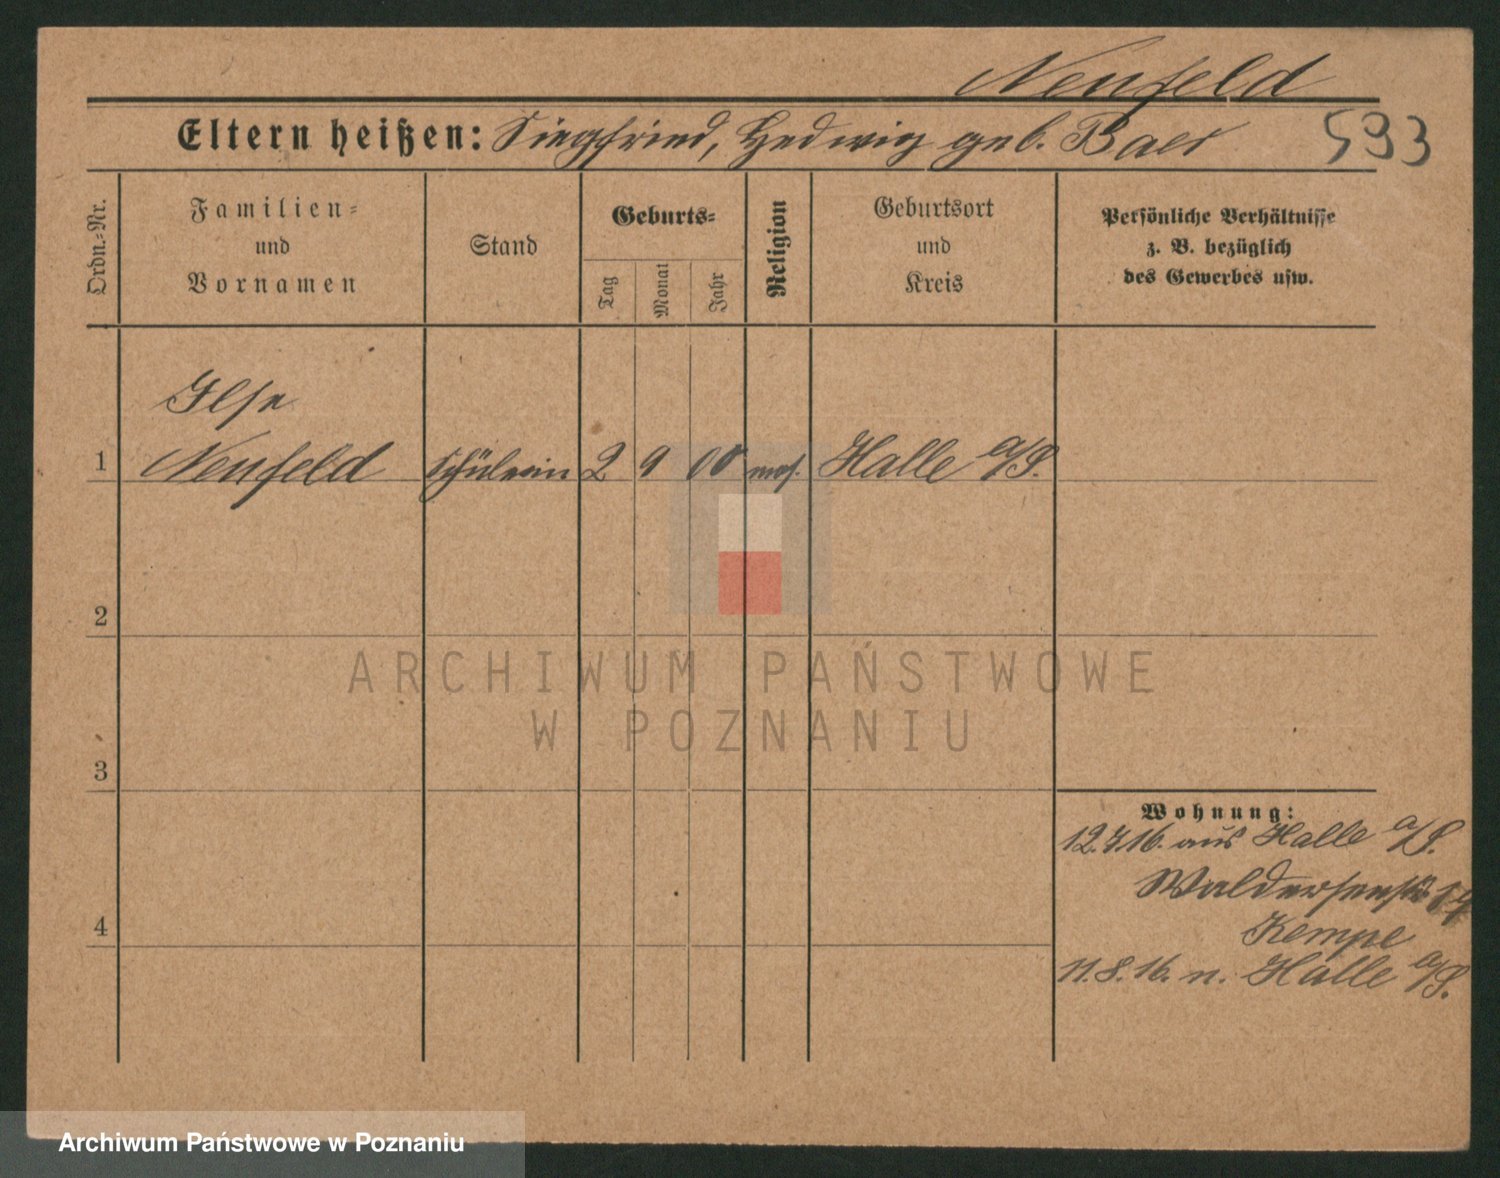 Neufeld
Eltern heißen: Siegfried, Hedwig geb. Baer
593
Ordn.-Nr.
Familien-
und
Vornamen
Stand
Geburts-
Tag
Monat
Jahr
Religion
Geburtsort
und
Kreis
Persönliche Verhältnisse
z. B. bezüglich
des Gewerbes usw.
Ilse
1 Neufeld Schülerin 2 9 00 mos. Halle a/S.
2
3
4
ARCHIWUM PAŃSTWOWE
W POZNANIU
Wohnung:
12.7.16. aus Halle a/S.
Walderseestr.
Kempe
11.8.16. n. Halle a/S.
Archiwum Państwowe w Poznaniu